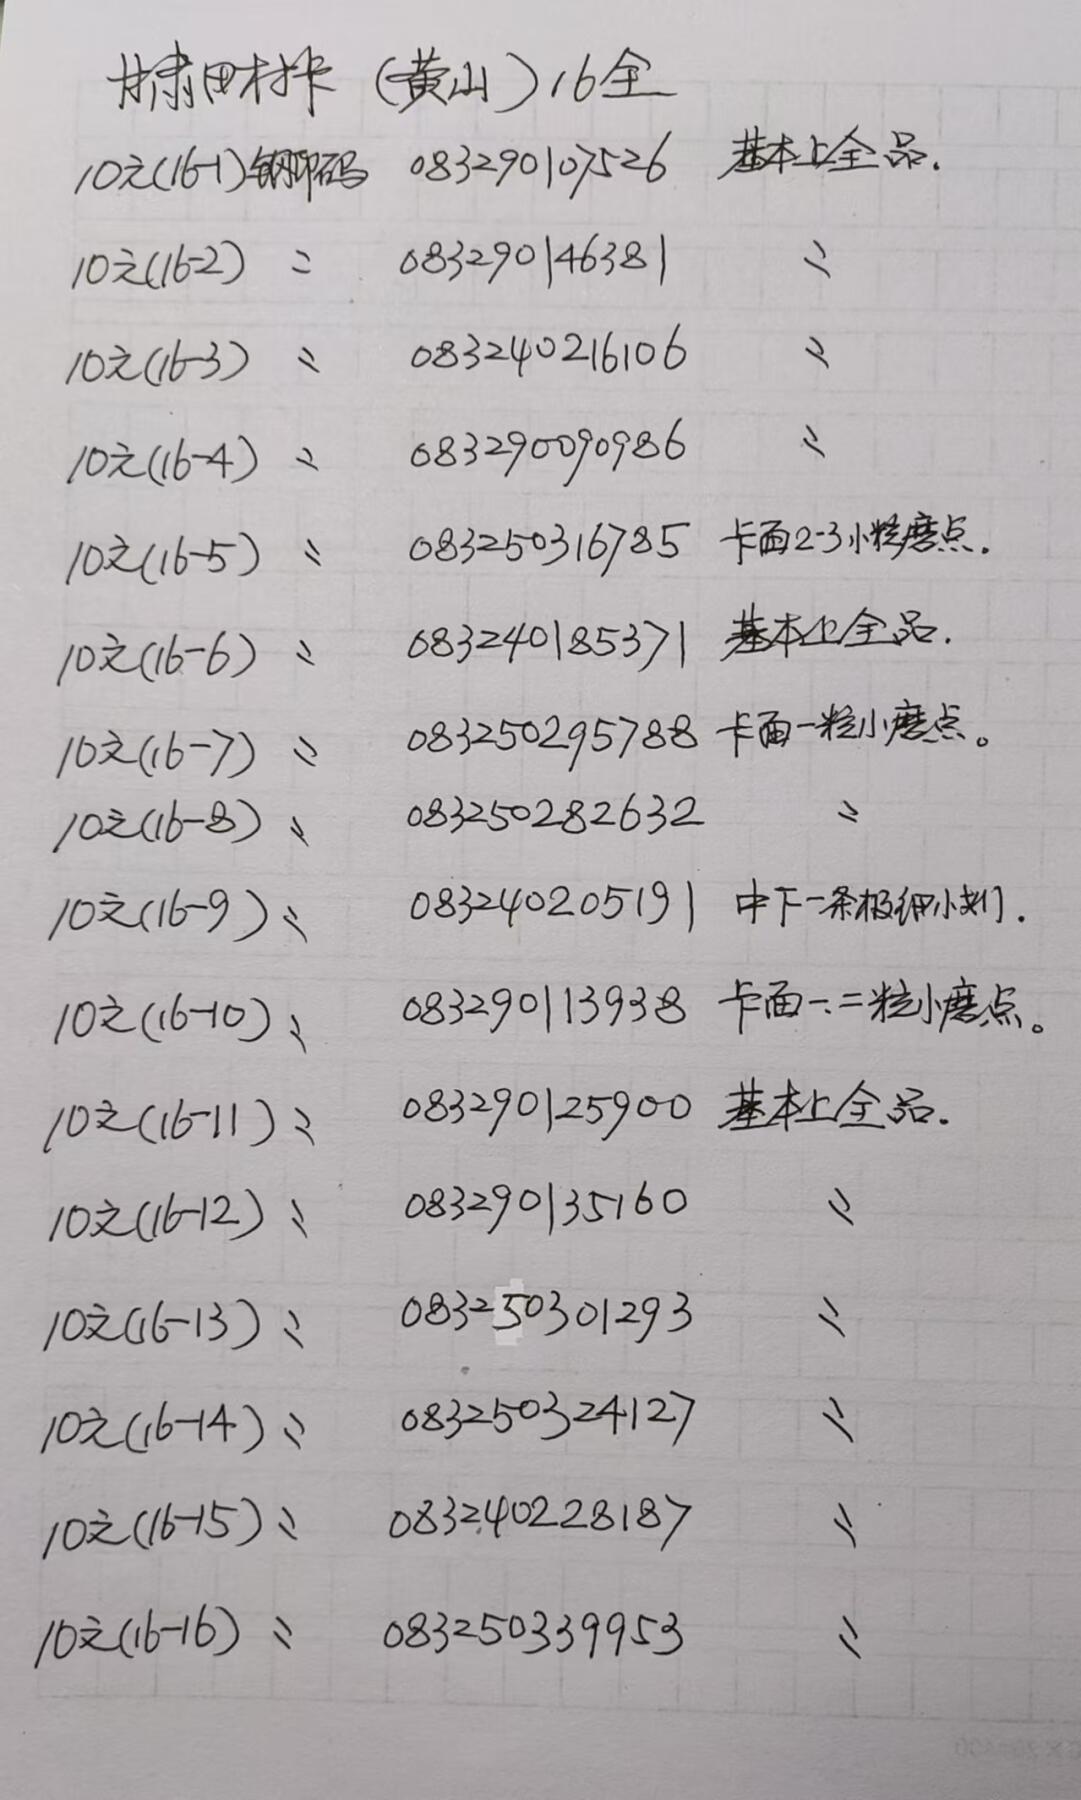 甘肃田村卡（黄山）16全
10元(16-1)钢印码 083290107526 基本上全品.
10元(16-2) 〃 083290146381 〃
10元(16-3) 〃 083240216106 〃
10元(16-4) 〃 083290090986 〃
10元(16-5) 〃 083250316785 卡面2-3小粒磨点.
10元(16-6) 〃 083240185371 基本上全品.
10元(16-7) 〃 083250295788 卡面一粒小磨点。
10元(16-8) 〃 083250282632 〃
10元(16-9) 〃 083240205191 中下一条极细小划.
10元(16-10) 〃 083290113938 卡面一.二粒小磨点。
10元(16-11) 〃 083290125900 基本上全品.
10元(16-12) 〃 083290135160 〃
10元(16-13) 〃 083250301293 〃
10元(16-14) 〃 083250324127 〃
10元(16-15) 〃 083240228187 〃
10元(16-16) 〃 083250339953 〃